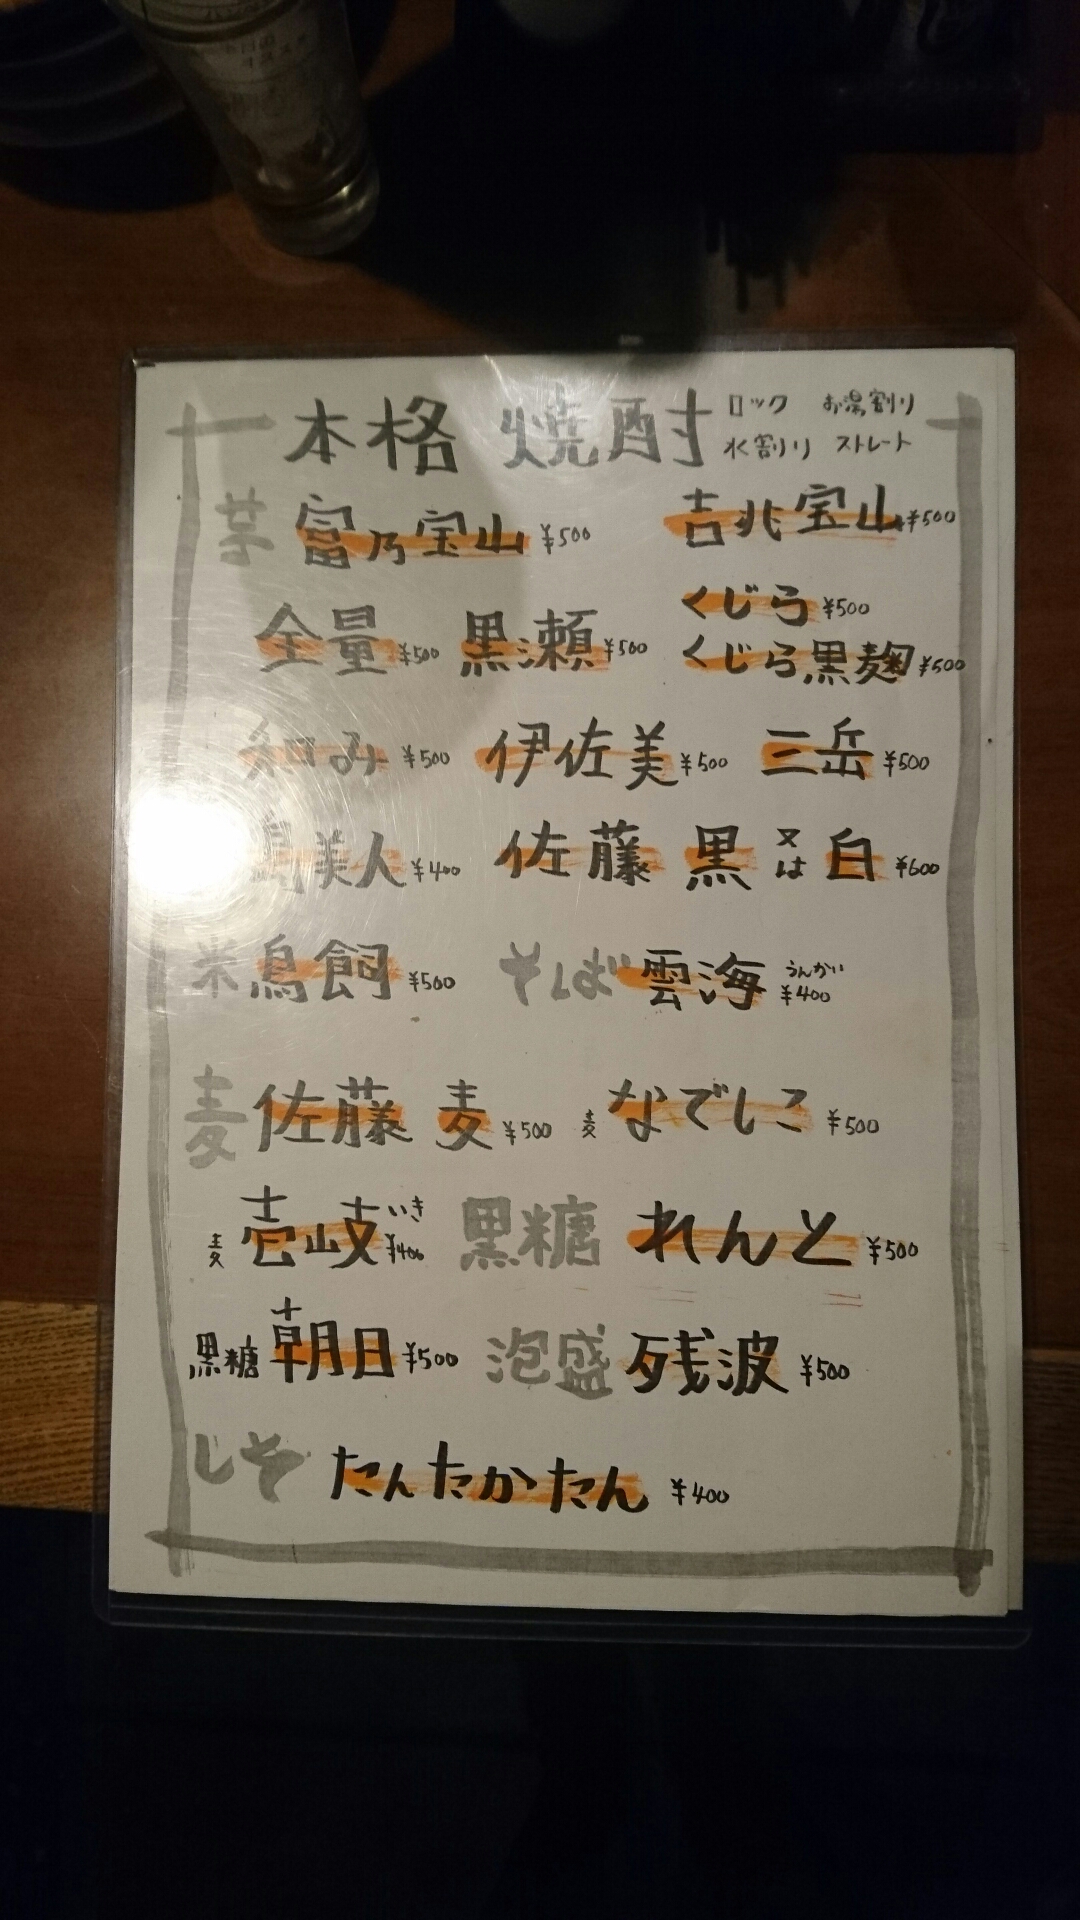 本格 焼酎 ロック お湯割り
水割り ストレート
芋 富乃宝山 ¥500 吉兆宝山 ¥500
くじら ¥500
全量 ¥500 黒瀬 ¥500 くじら黒麹 ¥500
和み ¥500 伊佐美 ¥500 三岳 ¥500
美人 ¥400 佐藤 黒 又は 白 ¥600
米 鳥飼 ¥500 そば 雲海 うんかい ¥400
麦 佐藤 麦 ¥500 麦 なでしこ ¥500
麦 壱岐 いき ¥400 黒糖 れんと ¥500
黒糖 朝日 ¥500 泡盛 残波 ¥500
しそ たんたかたん ¥400